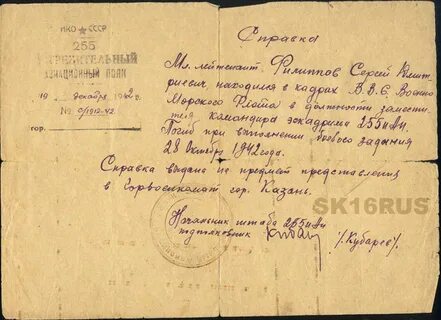 НКО СССР
255
ИСТРЕБИТЕЛЬНЫЙ
АВИАЦИОННЫЙ ПОЛК
19 декабря 1942 г.
№ 0/1912-42
гор.
Справка
Мл. лейтенант Филиппов Сергей Дмит
риевич, находился в кадрах В.В.С. Военно
Морского Флота в должности замести
теля командира эскадрильи 255 иап.
Погиб при выполнении боевого задания
28 Октября 1942 года.
Справка выдана на предмет представления
в Горвоенкомат гор. Казань.
Начальник штаба 255 иап
подполковник
/Кубарев/.
SK16RUS